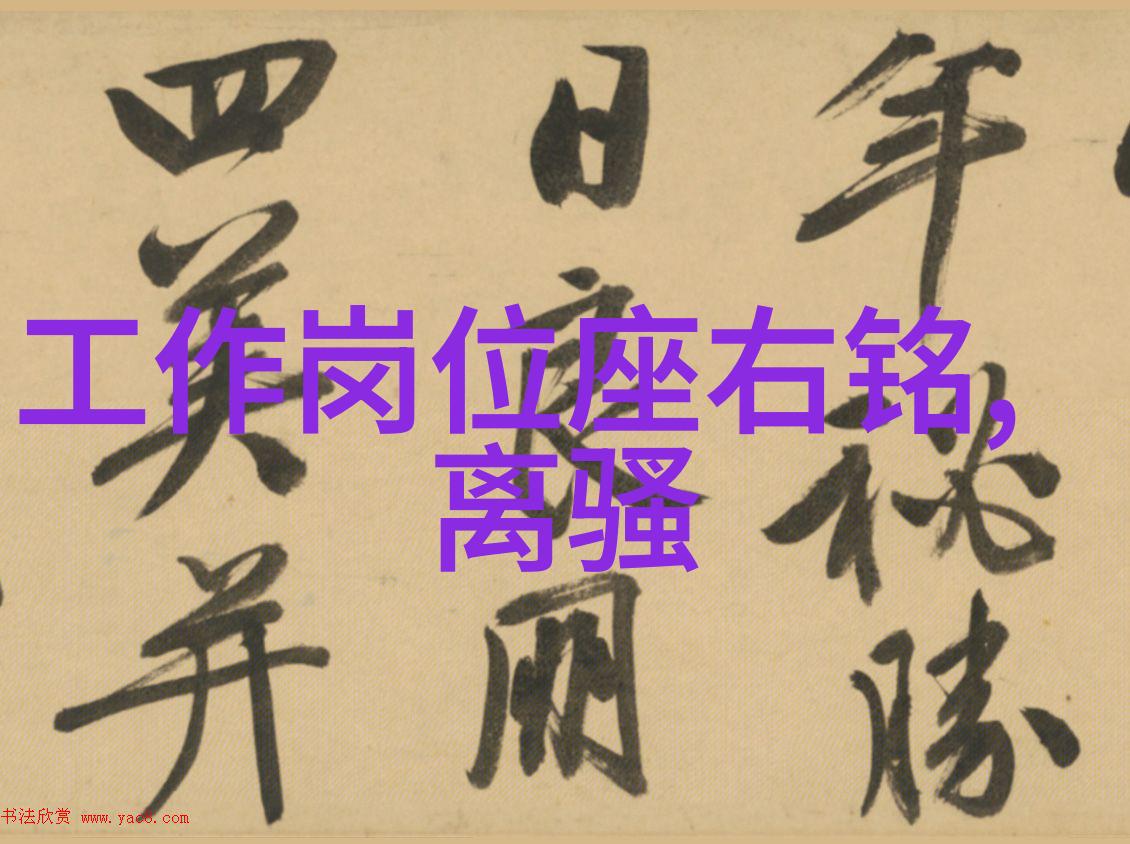 年秘勝
日
四美并
工作岗位座右铭,
离骚
书法欣赏 www.yac8.com